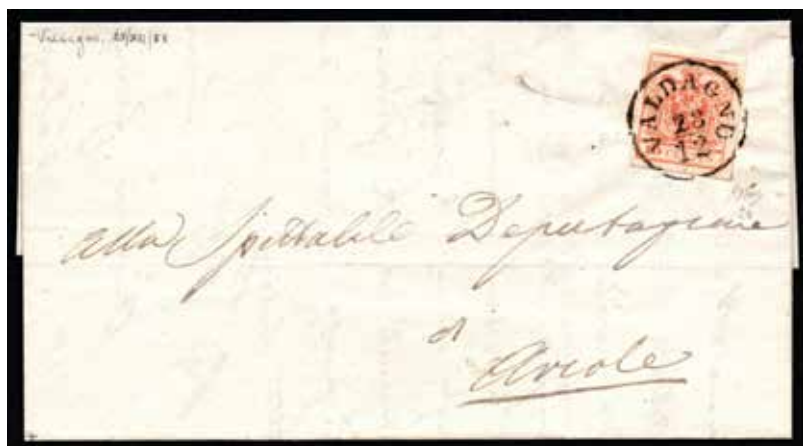 VALDAGNO
23
12
alla Spettabile Deputazione
di
Arcole